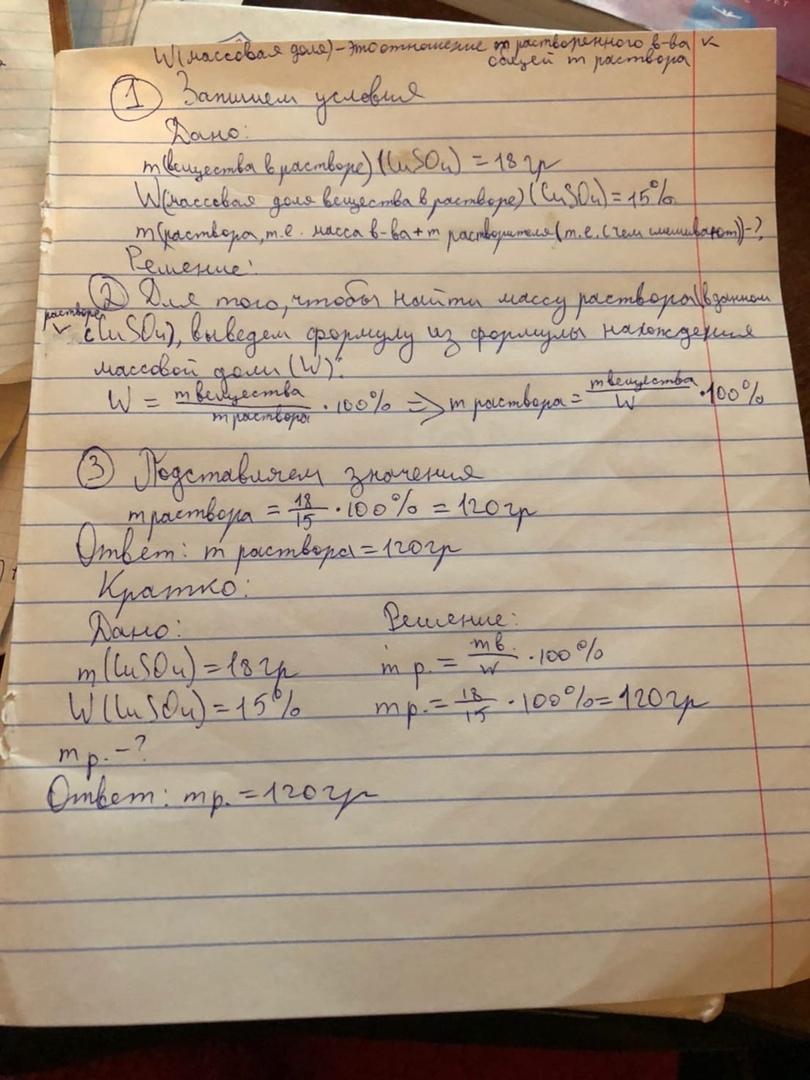 W(массовая доля) – это отношение m растворенного в-ва к
общей m раствора
1 Запишем условия
Дано:
m(вещества в растворе)(CuSO4) = 18гр
W(массовая доля вещества в растворе)(CuSO4)=15%
m(раствора, т.е. масса в-ва + m растворителя (т.е. с чем смешивают))-?
Решение:
2 Для того, чтобы найти массу раствора (в данном
растворе
с CuSO4), выведем формулу из формулы нахождения
массовой доли (W):
W = m вещества / m раствора · 100% => m раствора = m вещества / W · 100%
3 Подставляем значения
m раствора = 18/15 · 100% = 120гр
Ответ: m раствора = 120гр
Кратко:
Дано: Решение:
m(CuSO4)=18гр m р. = m в. / W · 100%
W(CuSO4)=15% m р. = 18/15 · 100% = 120гр
m р. – ?
Ответ: m р. = 120гр